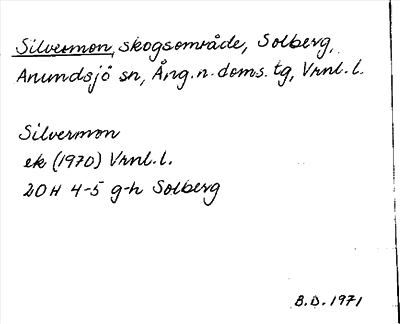 Silvermon, skogsområde, Solberg,
Anundsjö sn, Ång.n.doms.tg, Vrnl.l.
Silvermon
ek (1970) Vrnl.l.
20H 4-5 g-h Solberg
B.D. 1971